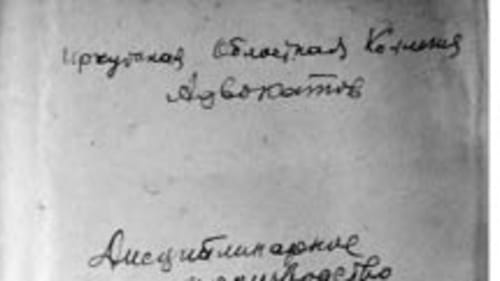 Иркутская Областная Коллегия
Адвокатов
Дисциплинарное
производство